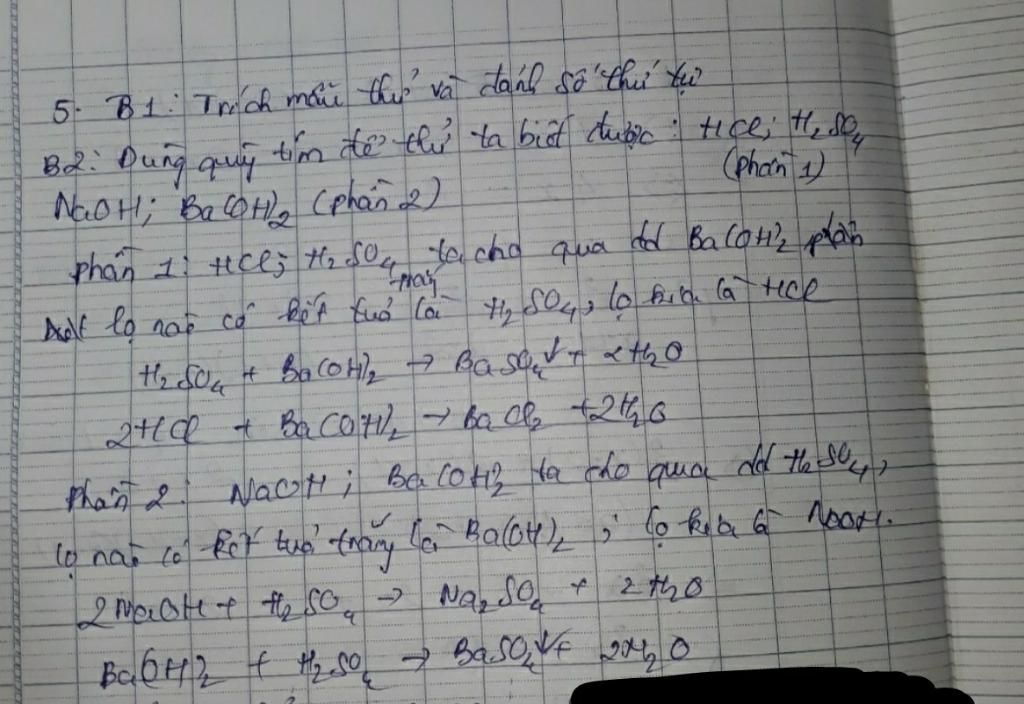 5. B1: Trích mẫu thử và đánh số thứ tự
B2: Dùng quỳ tím để thử ta biết được: HCl; H₂SO₄
(phần 1)
NaOH; Ba(OH)₂ (phần 2)
phần 1: HCl; H₂SO₄ ta cho qua dd Ba(OH)₂
lọ nào có kết tủa trắng là H₂SO₄, lọ kia là HCl
H₂SO₄ + Ba(OH)₂ → BaSO₄↓ + 2H₂O
2HCl + Ba(OH)₂ → BaCl₂ + 2H₂O
Phần 2: NaOH; Ba(OH)₂ ta cho qua dd H₂SO₄,
lọ nào có kết tủa trắng là Ba(OH)₂; lọ kia là NaOH.
2NaOH + H₂SO₄ → Na₂SO₄ + 2H₂O
Ba(OH)₂ + H₂SO₄ → BaSO₄↓ + 2H₂O